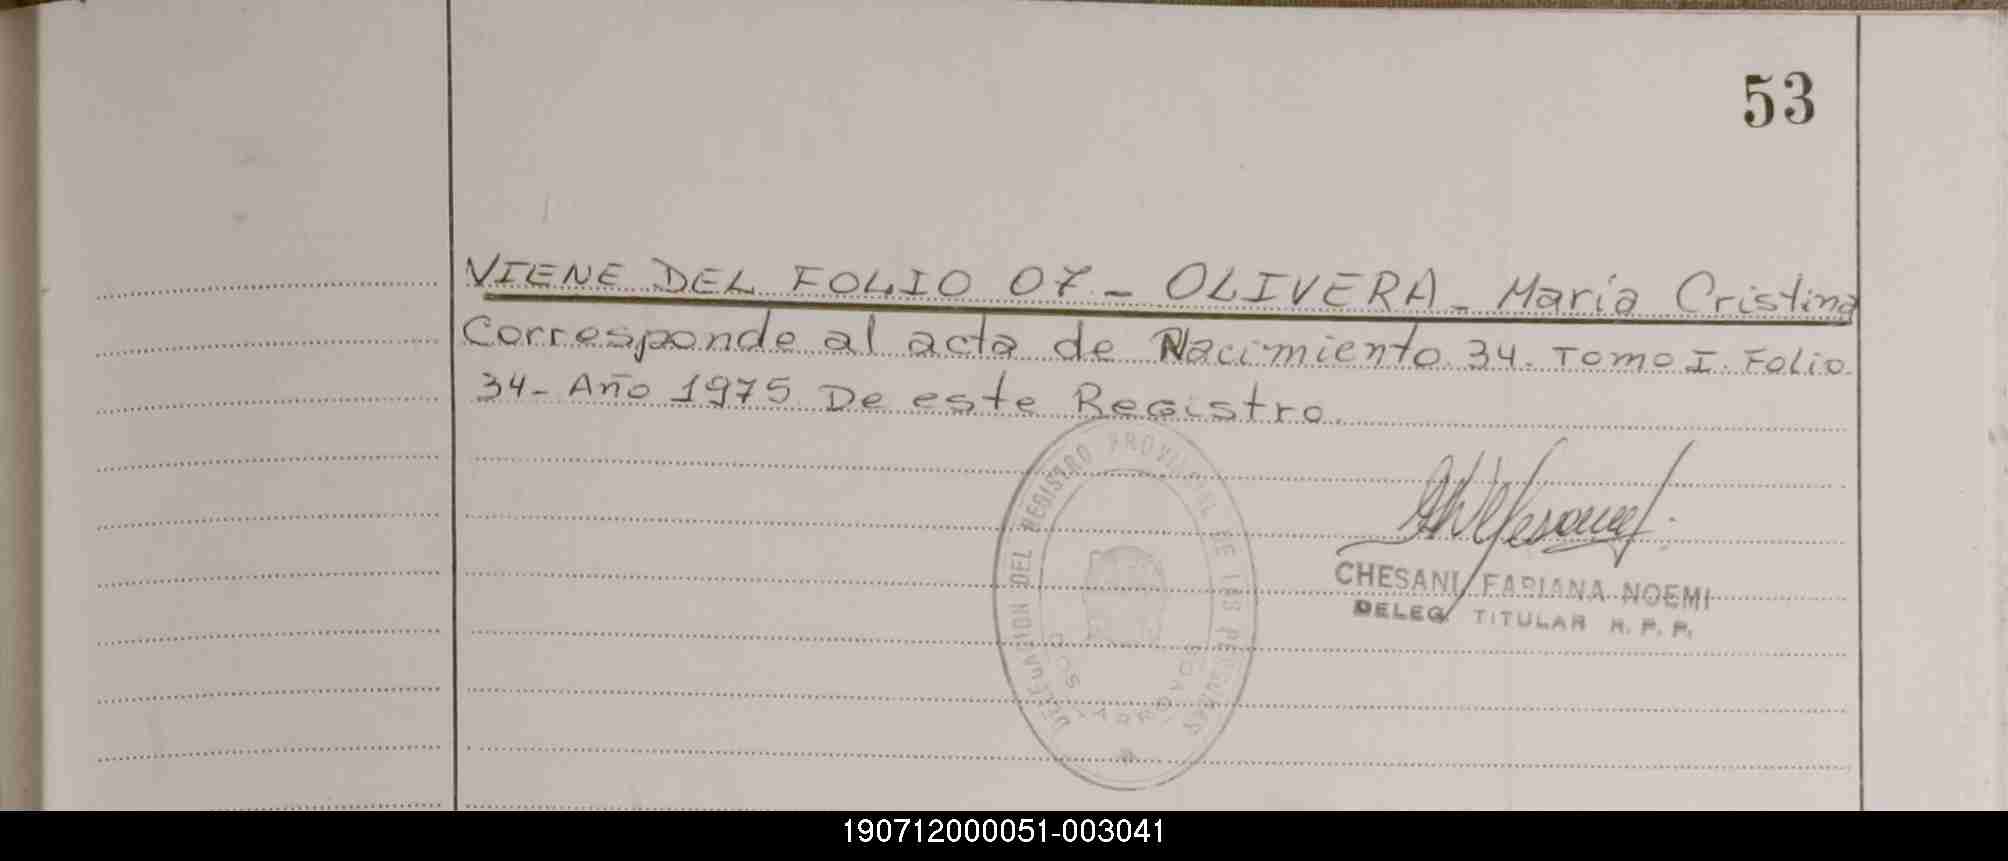 53
VIENE DEL FOLIO 07 - OLIVERA - María Cristina
Corresponde al acta de Nacimiento 34. Tomo I. Folio
34- Año 1975 De este Registro.
DELEGACION DEL REGISTRO PROVINCIAL DE LAS PERSONAS
DOS ARROYOS
CHESANI FABIANA NOEMI
DELEG TITULAR R. P. P.
190712000051-003041